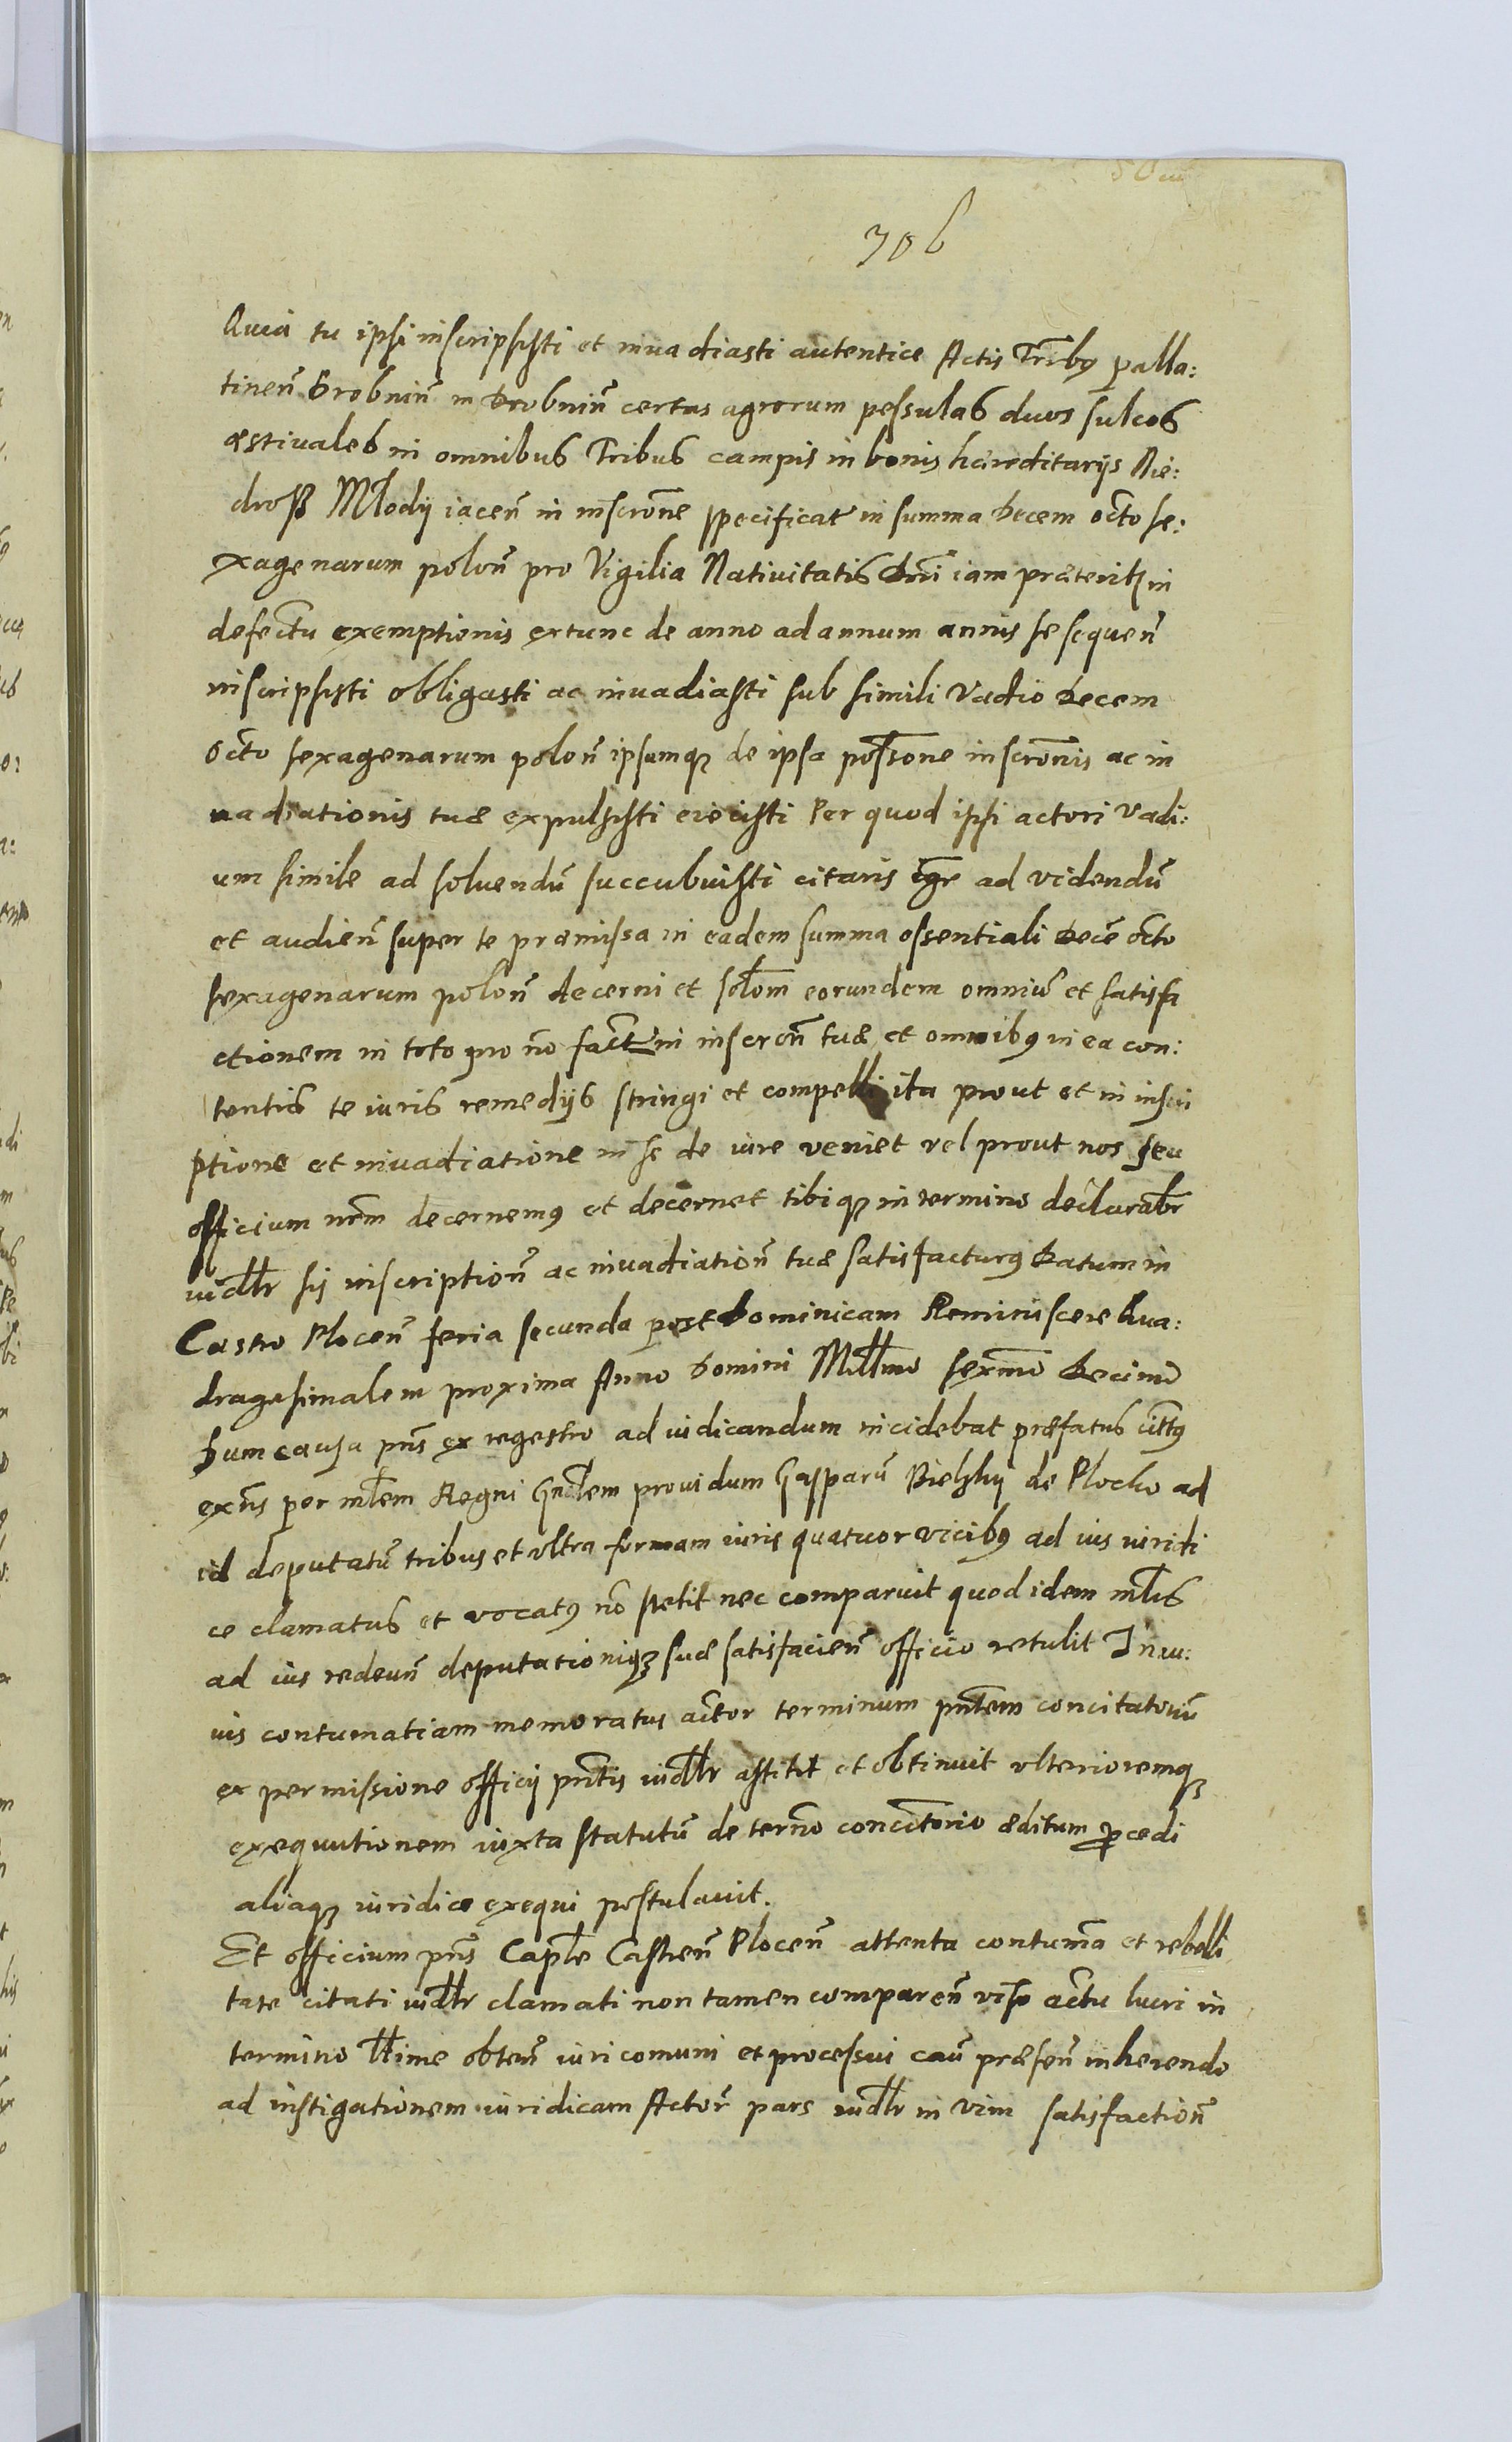 706
Quia tu ipsi inscripsisti et inuadiasti autentice Actis Trnibus palla:
tinen̄ Drobnin̄ in Drobnin̄ certas agrorum pessulas duos sulcos
æstiuales in omnibus Tribus campis in bonis hæreditarijs Bie:
dross Młodij iacen̄ in inscrōne specificat in summa decem octo se:
xagenarum polon̄ pro Vigilia Natiuitatis Dn̄i iam præterita in
defectu exemptionis extunc de anno ad annum annis se sequen̄
inscripsisti obligasti ac inuadiasti sub simili Vadio decem
Octo sexagenarum polon̄ ipsumq de ipsa possōne inscrōnis ac in
uadiationis tuæ expulsisti eiecisti Per quod ipsi actori Vadi:
um simile ad soluendū succubuisti citaris igr ad videndū
et audien̄ super te præmissa in eadem summa essentiali decē octo
sexagenarum polon̄ decerni et solōm eorundem omniū et satisfa
ctionem in toto pro nō fact in inscrōn̄ tuæ et omnibus in ea con:
tentis te iuris remedijs stringi et compelli ita prout et in inscri
ptione et inuadiatione in se de iure veniet vel prout nos seu
officium nrm decernemus et decernet tibiq in termino declarabr
vidllr sij inscription̄ ac inuadiation̄ tuæ satisfacturus Datum in
Castro Plocen̄ feria secunda post Dominicam Reminiscere Qua:
dragesimalem proxima Anno Domini Millmo sexmo decimo
Dum causa pn̄s ex regestro ad iudicandum incidebat præfatus citt9
exn̄s per mlem Regni Gn̄lem prouidum Gasparū Bielski de Plocko ad
id deputatū tribus et vltra formam iuris quatuor vicibus ad ius iuridi
ce clamatus et vocatus nō stetit nec comparuit quod idem mlis
ad ius redeun̄ deputationiq suæ satisfacien̄ officio retulit In cu:
ius contumatiam memoratus actor terminum pn̄tem concitatoriū
ex permissione officij pn̄tis vidllr astitit et obtinuit vlterioremq
exequutionem iuxta statutū de termō concitorio æditum procedi
aliaq iuridice exequi postulauit.
Et officium pn̄s Caple Castren̄ Plocen̄ attenta contuma et rebelli
tate citati vidllr clamati non tamen comparen̄ viso actu lucri in
termino lltime obten̄ iuri comuni et processui cau̅ præsen̄ inherendo
ad instigationem iuridicam Actor̄ pars vidllr in vim satisfaction̄